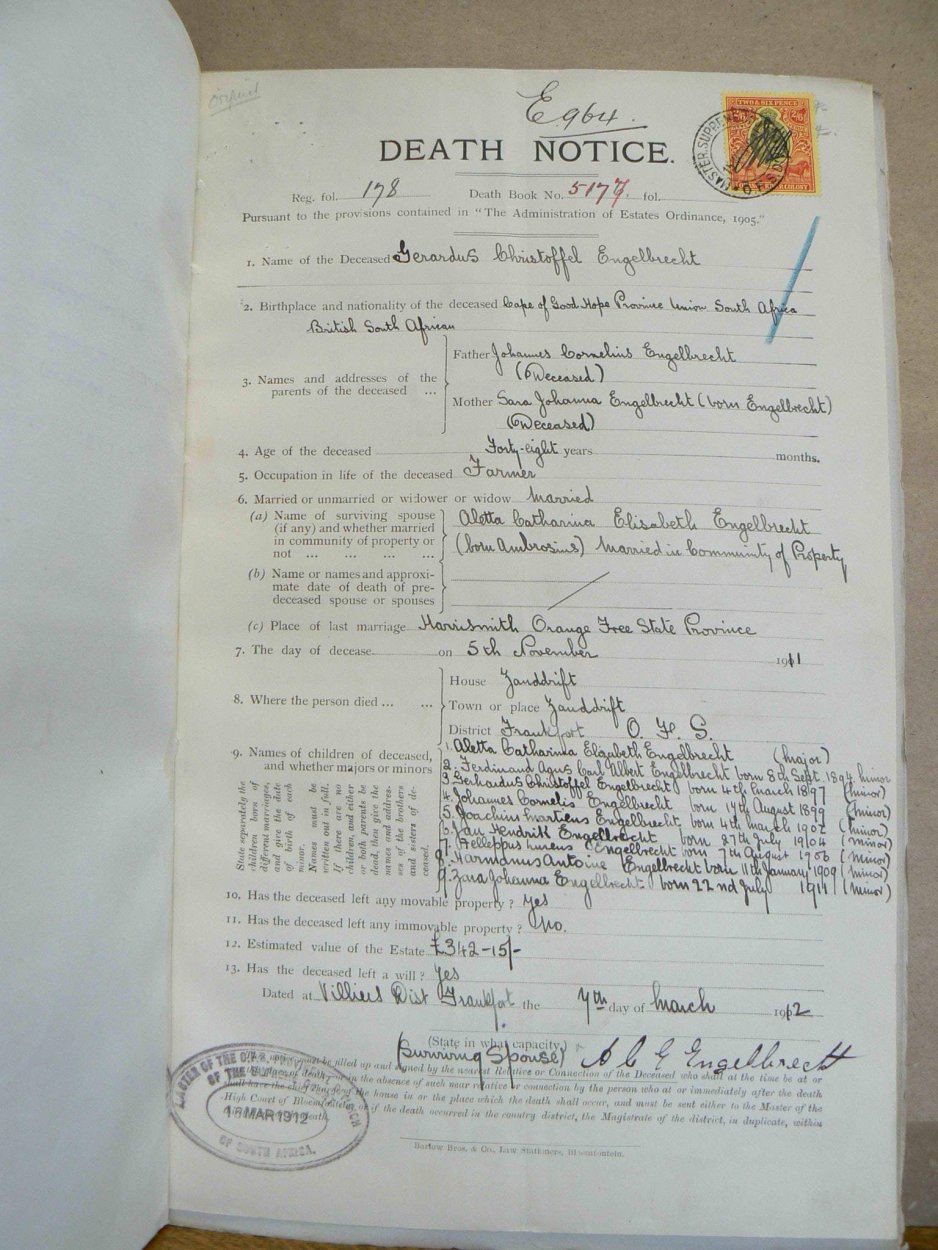 Original
E 964.
TWO & SIX PENCE
2/6
MASTER SUPREME
O.F.S.D.
COLONY
DEATH NOTICE.
Reg. fol. 178 Death Book No. 5177. fol.
Pursuant to the provisions contained in "The Administration of Estates Ordinance, 1905."
1. Name of the Deceased Gerardus Christoffel Engelbrecht
2. Birthplace and nationality of the deceased Cape of Good Hope Province Union South Africa
British South African
Father Johannes Cornelius Engelbrecht
(Deceased)
3. Names and addresses of the
parents of the deceased ...
Mother Sara Johanna Engelbrecht (born Engelbrecht)
(Deceased)
4. Age of the deceased Forty-eight years months.
5. Occupation in life of the deceased Farmer
6. Married or unmarried or widower or widow Married
(a) Name of surviving spouse
(if any) and whether married
in community of property or
not ... ... ... ...
Aletta Catharina Elisabeth Engelbrecht
(born Ambrosius) Married in Community of Property
(b) Name or names and approxi-
mate date of death of pre-
deceased spouse or spouses
(c) Place of last marriage Harrismith Orange Free State Province
7. The day of decease on 5th November 1911
8. Where the person died ... ...
House Zanddrift
Town or place Zanddrift
District Frankfort O. F. S.
9. Names of children of deceased,
and whether majors or minors
State separately the
children born of
different marriages,
and give the date
of birth of each
minor.
Names must be
written out in full.
If there are no
children, and either
or both parents be
dead, then give the
names and addres-
ses of the brothers
and sisters of de-
ceased.
1. Aletta Catharina Elizabeth Engelbrecht (major)
2. Ferdinand Agus Carl Albert Engelbrecht born 8th Sept. 1894 minor
3 Gerhardus Christoffel Engelbrecht born 4th March 1897 (minor)
4. Johannes Cornelis Engelbrecht born 14th August 1899 (minor)
5. Joachim Martiens Engelbrecht born 4th March 1902 (minor)
6. Jan Hendrik Engelbrecht born 27th July 1904 (minor)
7. Engelbrecht born 7th August 1906 (minor)
8. Harmanus Antoine Engelbrecht born 11th January 1909 (minor)
9. Zara Johanna Engelbrecht born 22nd July 1911 (minor)
10. Has the deceased left any movable property? Yes
11. Has the deceased left any immovable property? No.
12. Estimated value of the Estate £342-15/-
13. Has the deceased left a will? Yes
Dated at Villiers Dist Frankfort the 7th day of March 1912
(State in what capacity)
(Surviving Spouse) A C E Engelbrecht
must be filled up and signed by the nearest Relative or Connection of the Deceased who shall at the time be at or
death; or in the absence of such near relative or connection by the person who at or immediately after the death
shall have the of the house in or the place which the death shall occur, and must be sent either to the Master of the
High Court of Bloemfontein, or if the death occurred in the country district, the Magistrate of the district, in duplicate, within
death.
MASTER OF THE O.F.S.
OF THE
18 MAR 1912
OF SOUTH AFRICA.
Barlow Bros. & Co., Law Stationers, Bloemfontein.